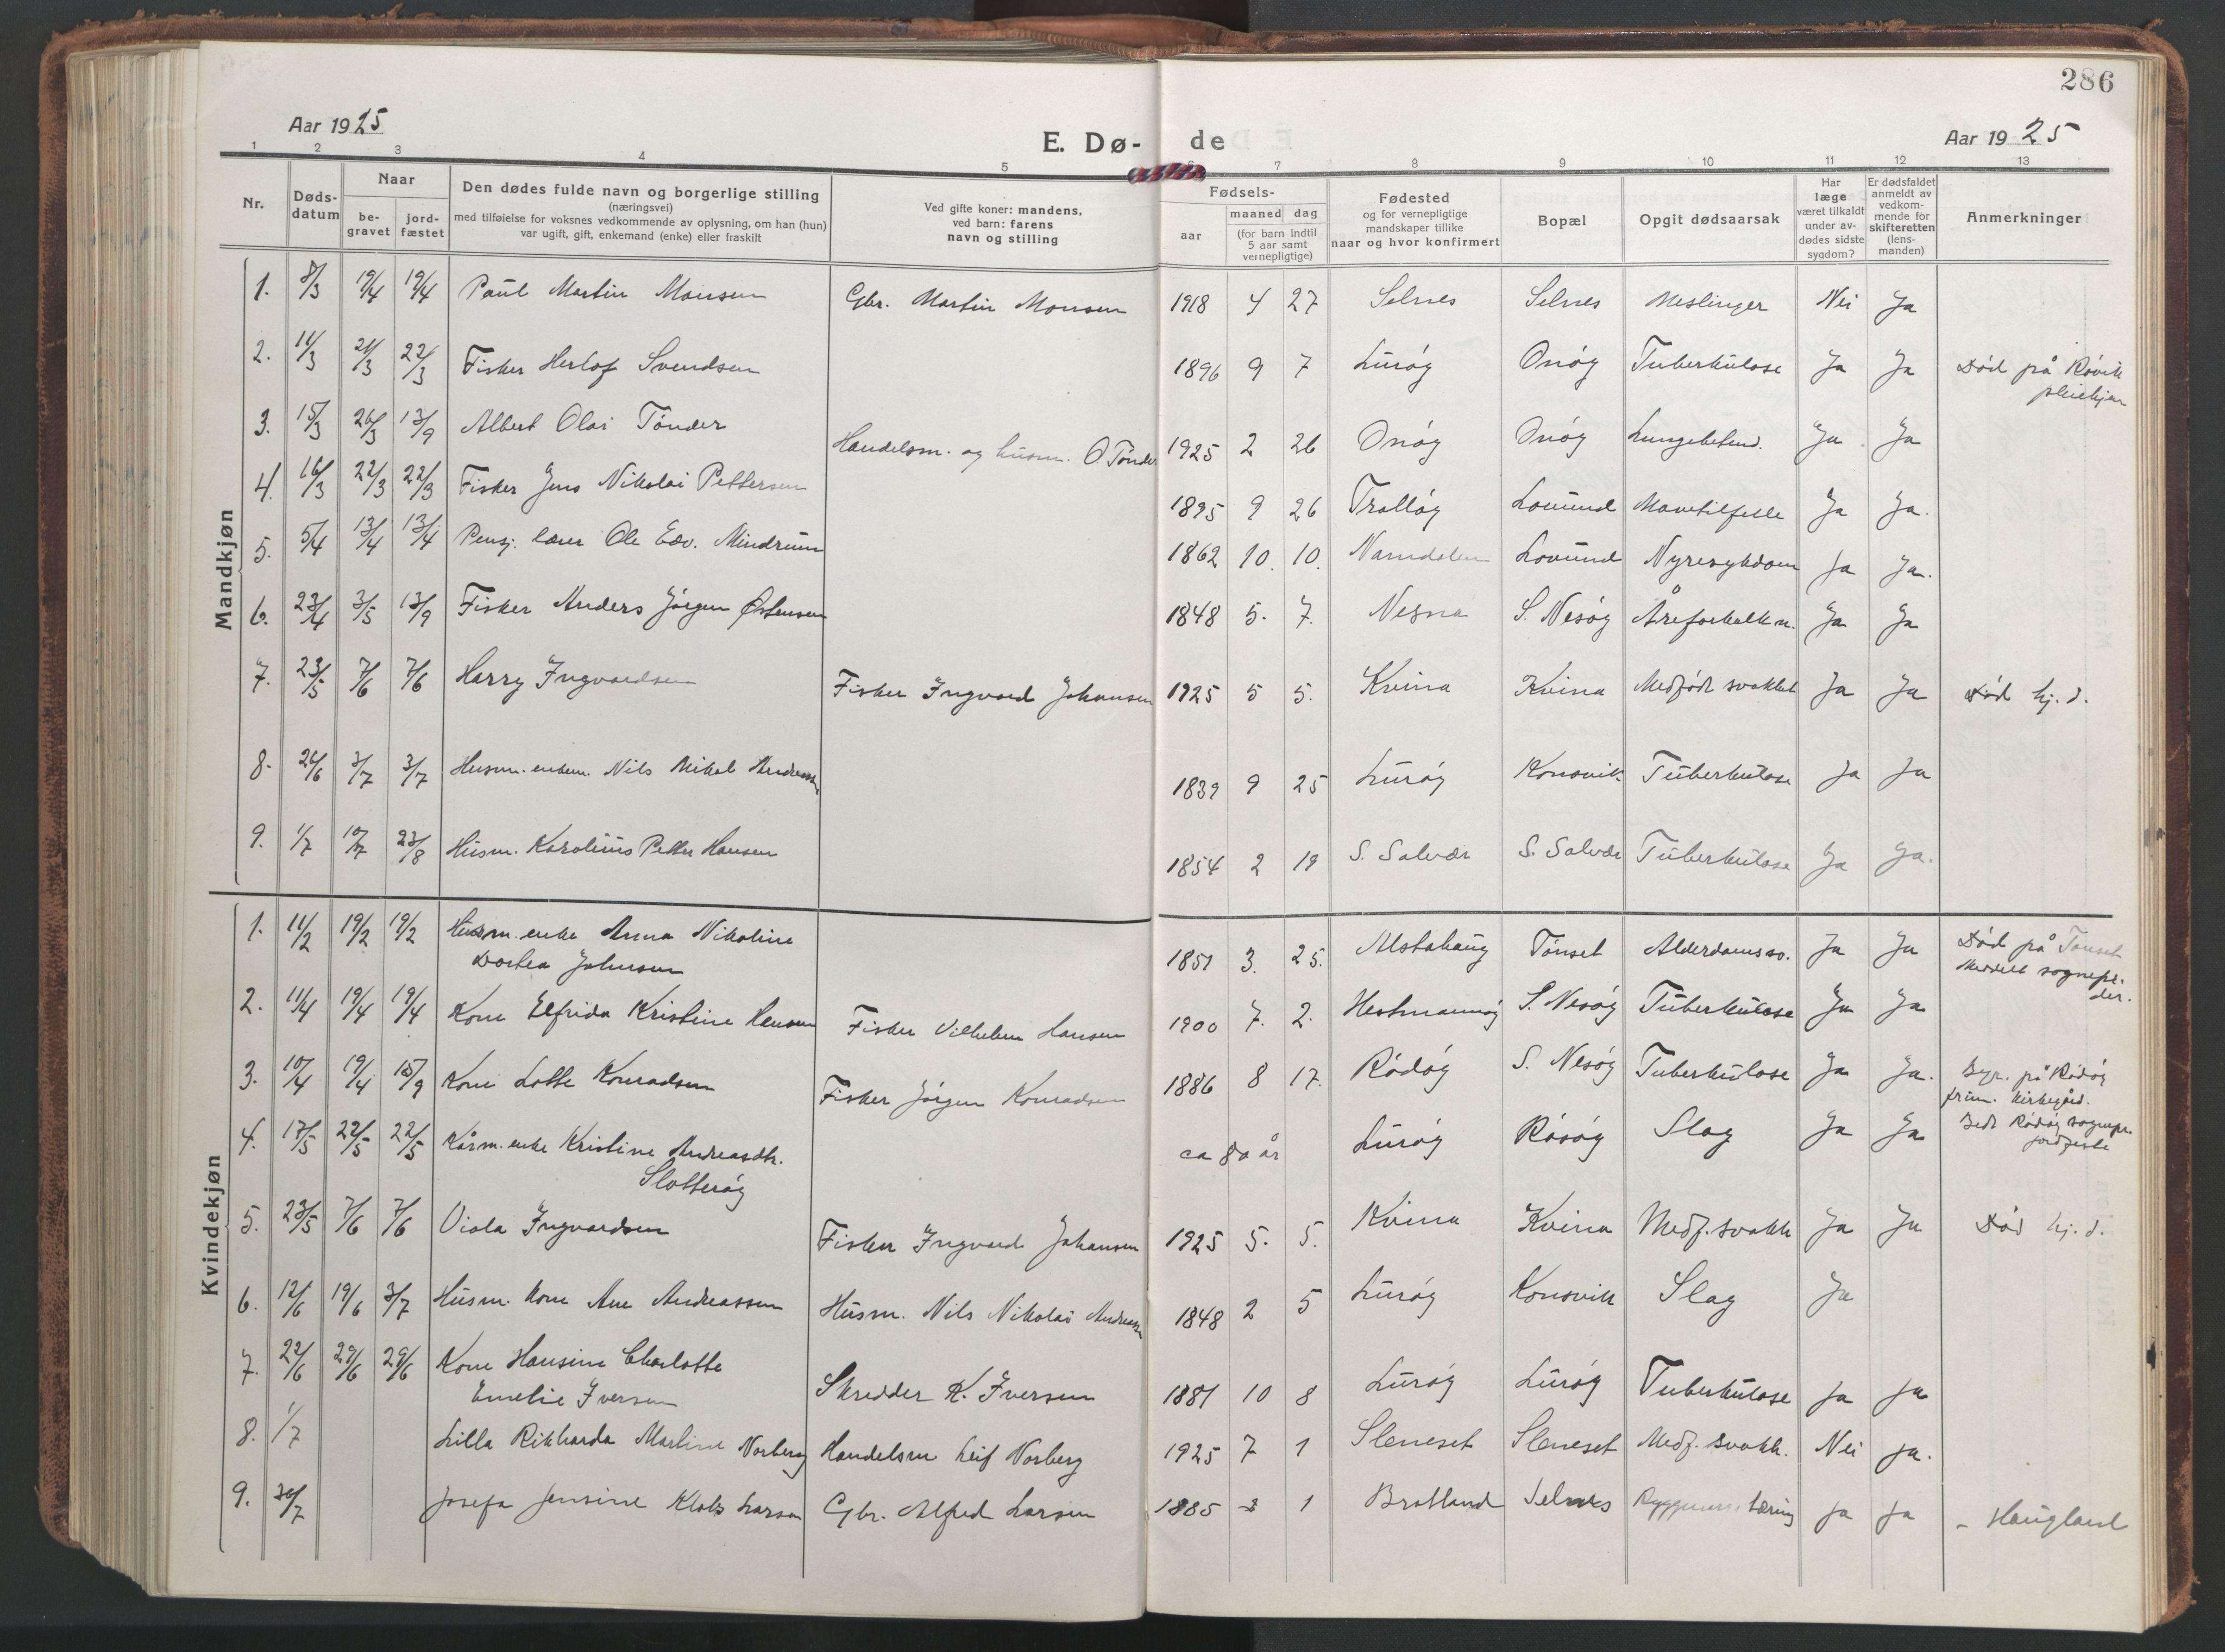 286
Aar 1925
E. Dø- de
Aar 1925
1 2 3 4 5 6 7 8 9 10 11 12 13
Nr.
Døds-
datum
Naar
be-
gravet
jord-
fæstet
Den dødes fulde navn og borgerlige stilling
(næringsvei)
med tilføielse for voksnes vedkommende av oplysning, om han (hun)
var ugift, gift, enkemand (enke) eller fraskilt
Ved gifte koner: mandens,
ved barn: farens
navn og stilling
Fødsels-
aar
maaned dag
(for barn indtil
5 aar samt
vernepligtige)
Fødested
og for vernepligtige
mandskaper tillike
naar og hvor konfirmert
Bopæl
Opgit dødsaarsak
Har
læge
været tilkaldt
under av-
dødes sidste
sygdom?
Er dødsfaldet
anmeldt av
vedkom-
mende for
skifteretten
(lens-
manden)
Anmerkninger
Mandkjøn
1. 8/3 19/4 19/4 Paul Martin Monsen Gbr. Martin Monsen 1918 4 27 Selnes Selnes Meslinger Nei Ja
2. 11/3 21/3 22/3 Fisker Herlof Svendsen 1896 9 7 Lurøy Onøy Tuberkulose Ja Ja Død på Røvik
pleiehjem
3. 15/3 26/3 13/9 Albert Olai Tønder Handelsm. og husm. O. Tønder 1925 2 26 Onøy Onøy Lungebetend. Ja Ja
4. 16/3 22/3 22/3 Fisker Jens Nikolai Pettersen 1895 9 26 Trolløy Lovund Mavetilfelle Ja Ja.
5. 5/4 13/4 13/4 Pensj. lærer Ole Edv. Mindrum 1862 10. 10. Namdalen Lovund Nyresykdom Ja Ja.
6. 23/4 3/5 13/9 Fisker Anders Jørgen Østensen 1848 5. 7. Nesna S. Nesøy Åreforkalkn. Ja Ja
7. 23/5 7/6 7/6 Harry Ingvardsen Fisker Ingvard Johansen 1925 5 5. Kvina Kvina Medfødt svakhet Ja Ja Død hj. d.
8. 26/6 3/7 3/7 Husm. enkem. Nils Mikal Andreassen 1839 9 25 Lurøy Konsvik Tuberkulose Ja Ja
9. 1/7 10/7 23/8 Husm. Karolius Petter Hansen 1854 2 19 S. Solvær S. Solvær Tuberkulose Ja Ja.
Kvindekjøn
1. 11/2 19/2 19/2 Husm. enke Anna Nikoline
Dortea Johnsen 1851 3. 25. Alstahaug Tonset Alderdomssv. Ja Ja Død på Tonset
Meddelt sognepr.
der.
2. 11/4 19/4 19/4 Kone Elfrida Kristine Hansen Fisker Vilhelm Hansen 1900 7. 2. Hestmannøy S. Nesøy Tuberkulose Ja Ja
3. 10/4 19/4 15/9 Kone Lotte Konradsen Fisker Jørgen Konradsen 1886 8 17. Rødøy S. Nesøy Tuberkulose Ja Ja. Begr. på Rødøy
prim. kirkegård.
4. 17/5 22/5 22/5 Kårm. enke Kristine Andreasdtr.
Slotterøy ca 80 år Lurøy Råsøy Slag Ja Ja Bedt Rødøy sognepr.
jordfeste
5. 23/5 7/6 7/6 Viola Ingvardsen Fisker Ingvard Johansen 1925 5. 5. Kvina Kvina Medf. svakh Ja Ja Død hj. d.
6. 12/6 19/6 3/7 Husm. kone Ane Andreassen Husm. Nils Nikolai Andreassen 1848 2 5 Lurøy Konsvik Slag Ja
7. 22/6 29/6 29/6 Kone Hansine Charlotte
Emelie Iversen Skredder K. Iversen 1881 10 8 Lurøy Lurøy Tuberkulose Ja Ja
8. 1/7 Lilla Rikharda Martine Norberg Handelsm Leif Norberg 1925 7 1 Sleneset Sleneset Medf. svakh. Nei Ja.
9. 30/7 Josefa Jensine Klols Larsen Gbr. Alfred Larsen 1885 2 1 Bratland Selnes Ryggmarvstæring Ja Ja - Haugland